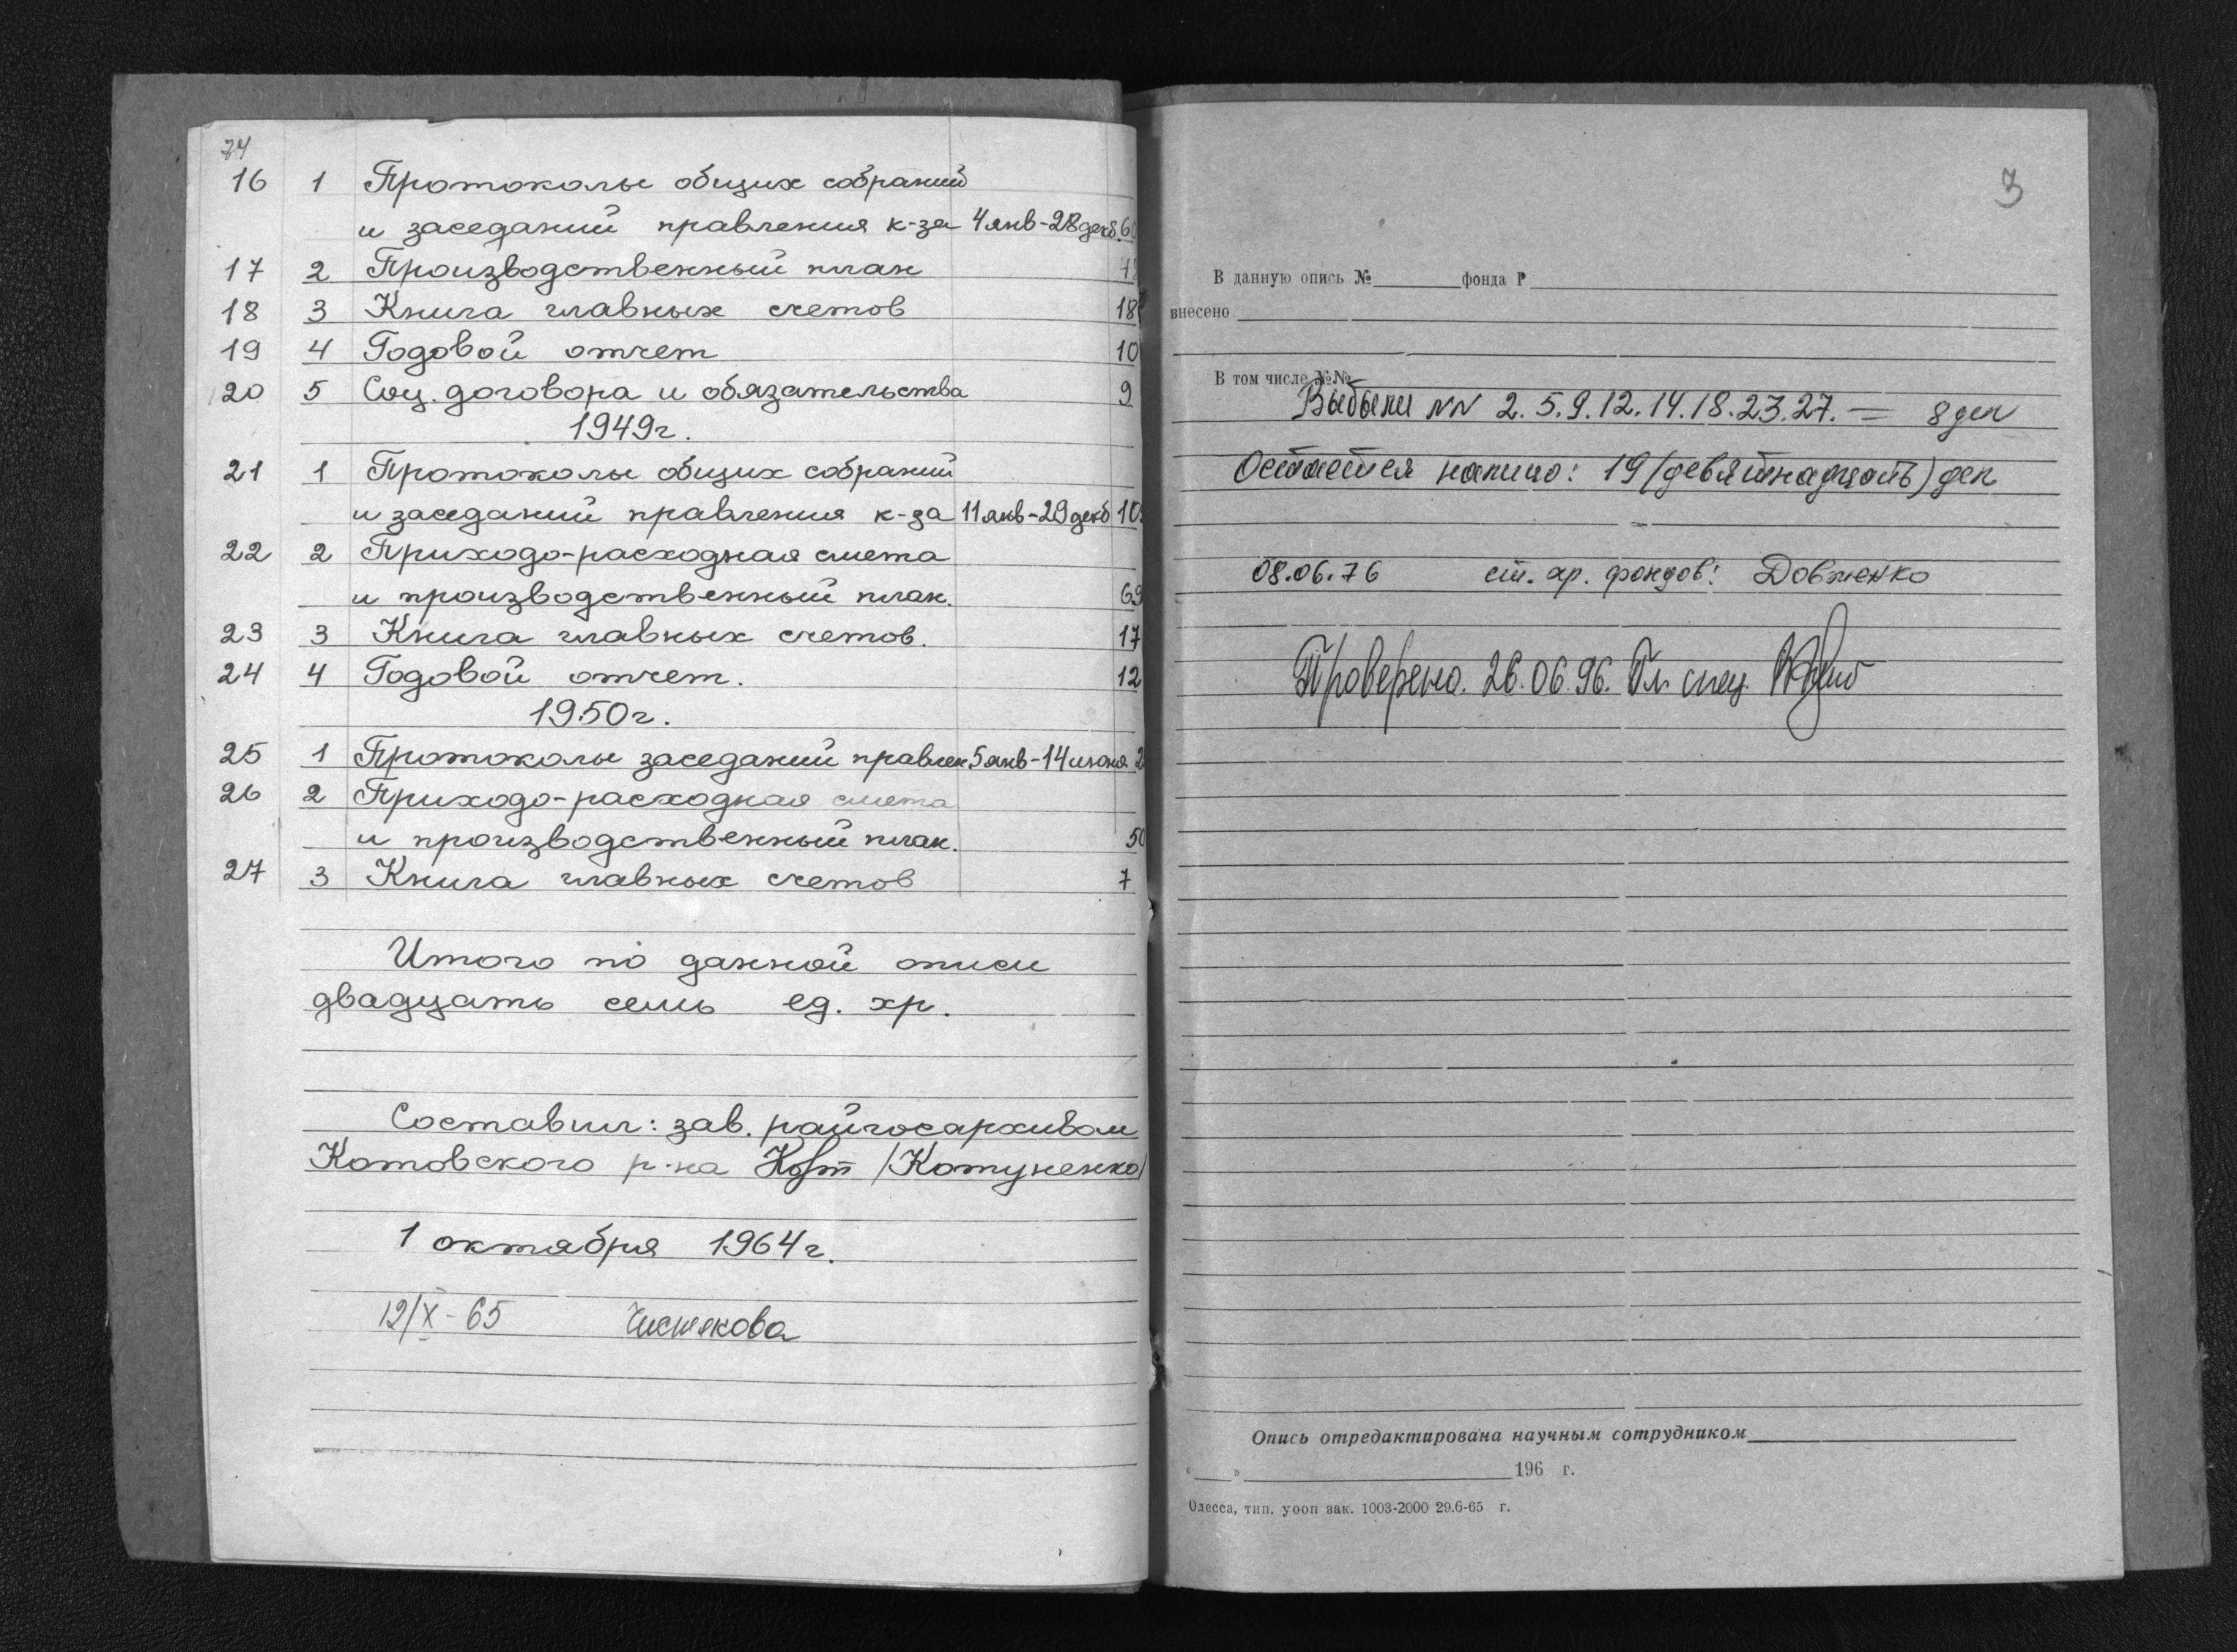 74
16 1 Протоколы общих собраний
и заседаний правления к-за 4 янв-28 декб. 60
17 2 Производственный план
18 3 Книга главных счетов 18
19 4 Годовой отчет 10
20 5 Соц. договора и обязательства 9
1949г.
21 1 Протоколы общих собраний
и заседаний правления к-за 11 янв-29 декб 10
22 2 Приходо-расходная смета
и производственный план. 69
23 3 Книга главных счетов. 17
24 4 Годовой отчет. 12
1950г.
25 1 Протоколы заседаний правлен 5 янв-14 июня 2
26 2 Приходо-расходная смета
и производственный план. 50
27 3 Книга главных счетов 7
Итого по данной описи
двадцать семь ед. хр.
Составил: зав. райгосархивом
Котовского р-на /Котуненко/
1 октября 1964г.
12/X-65 Чистякова
3
В данную опись № фонда Р
внесено
В том числе №№
Выбыли NN 2.5.9.12.14.18.23.27. = 8 дел
Остается налицо: 19 (девятнадцать) дел
08.06.76 ст. хр. фондов: Довженко
Проверено. 26.06.96. Гл. спец.
Опись отредактирована научным сотрудником
« » 196 г.
Одесса, тип. уооп зак. 1003-2000 29.6-65 г.